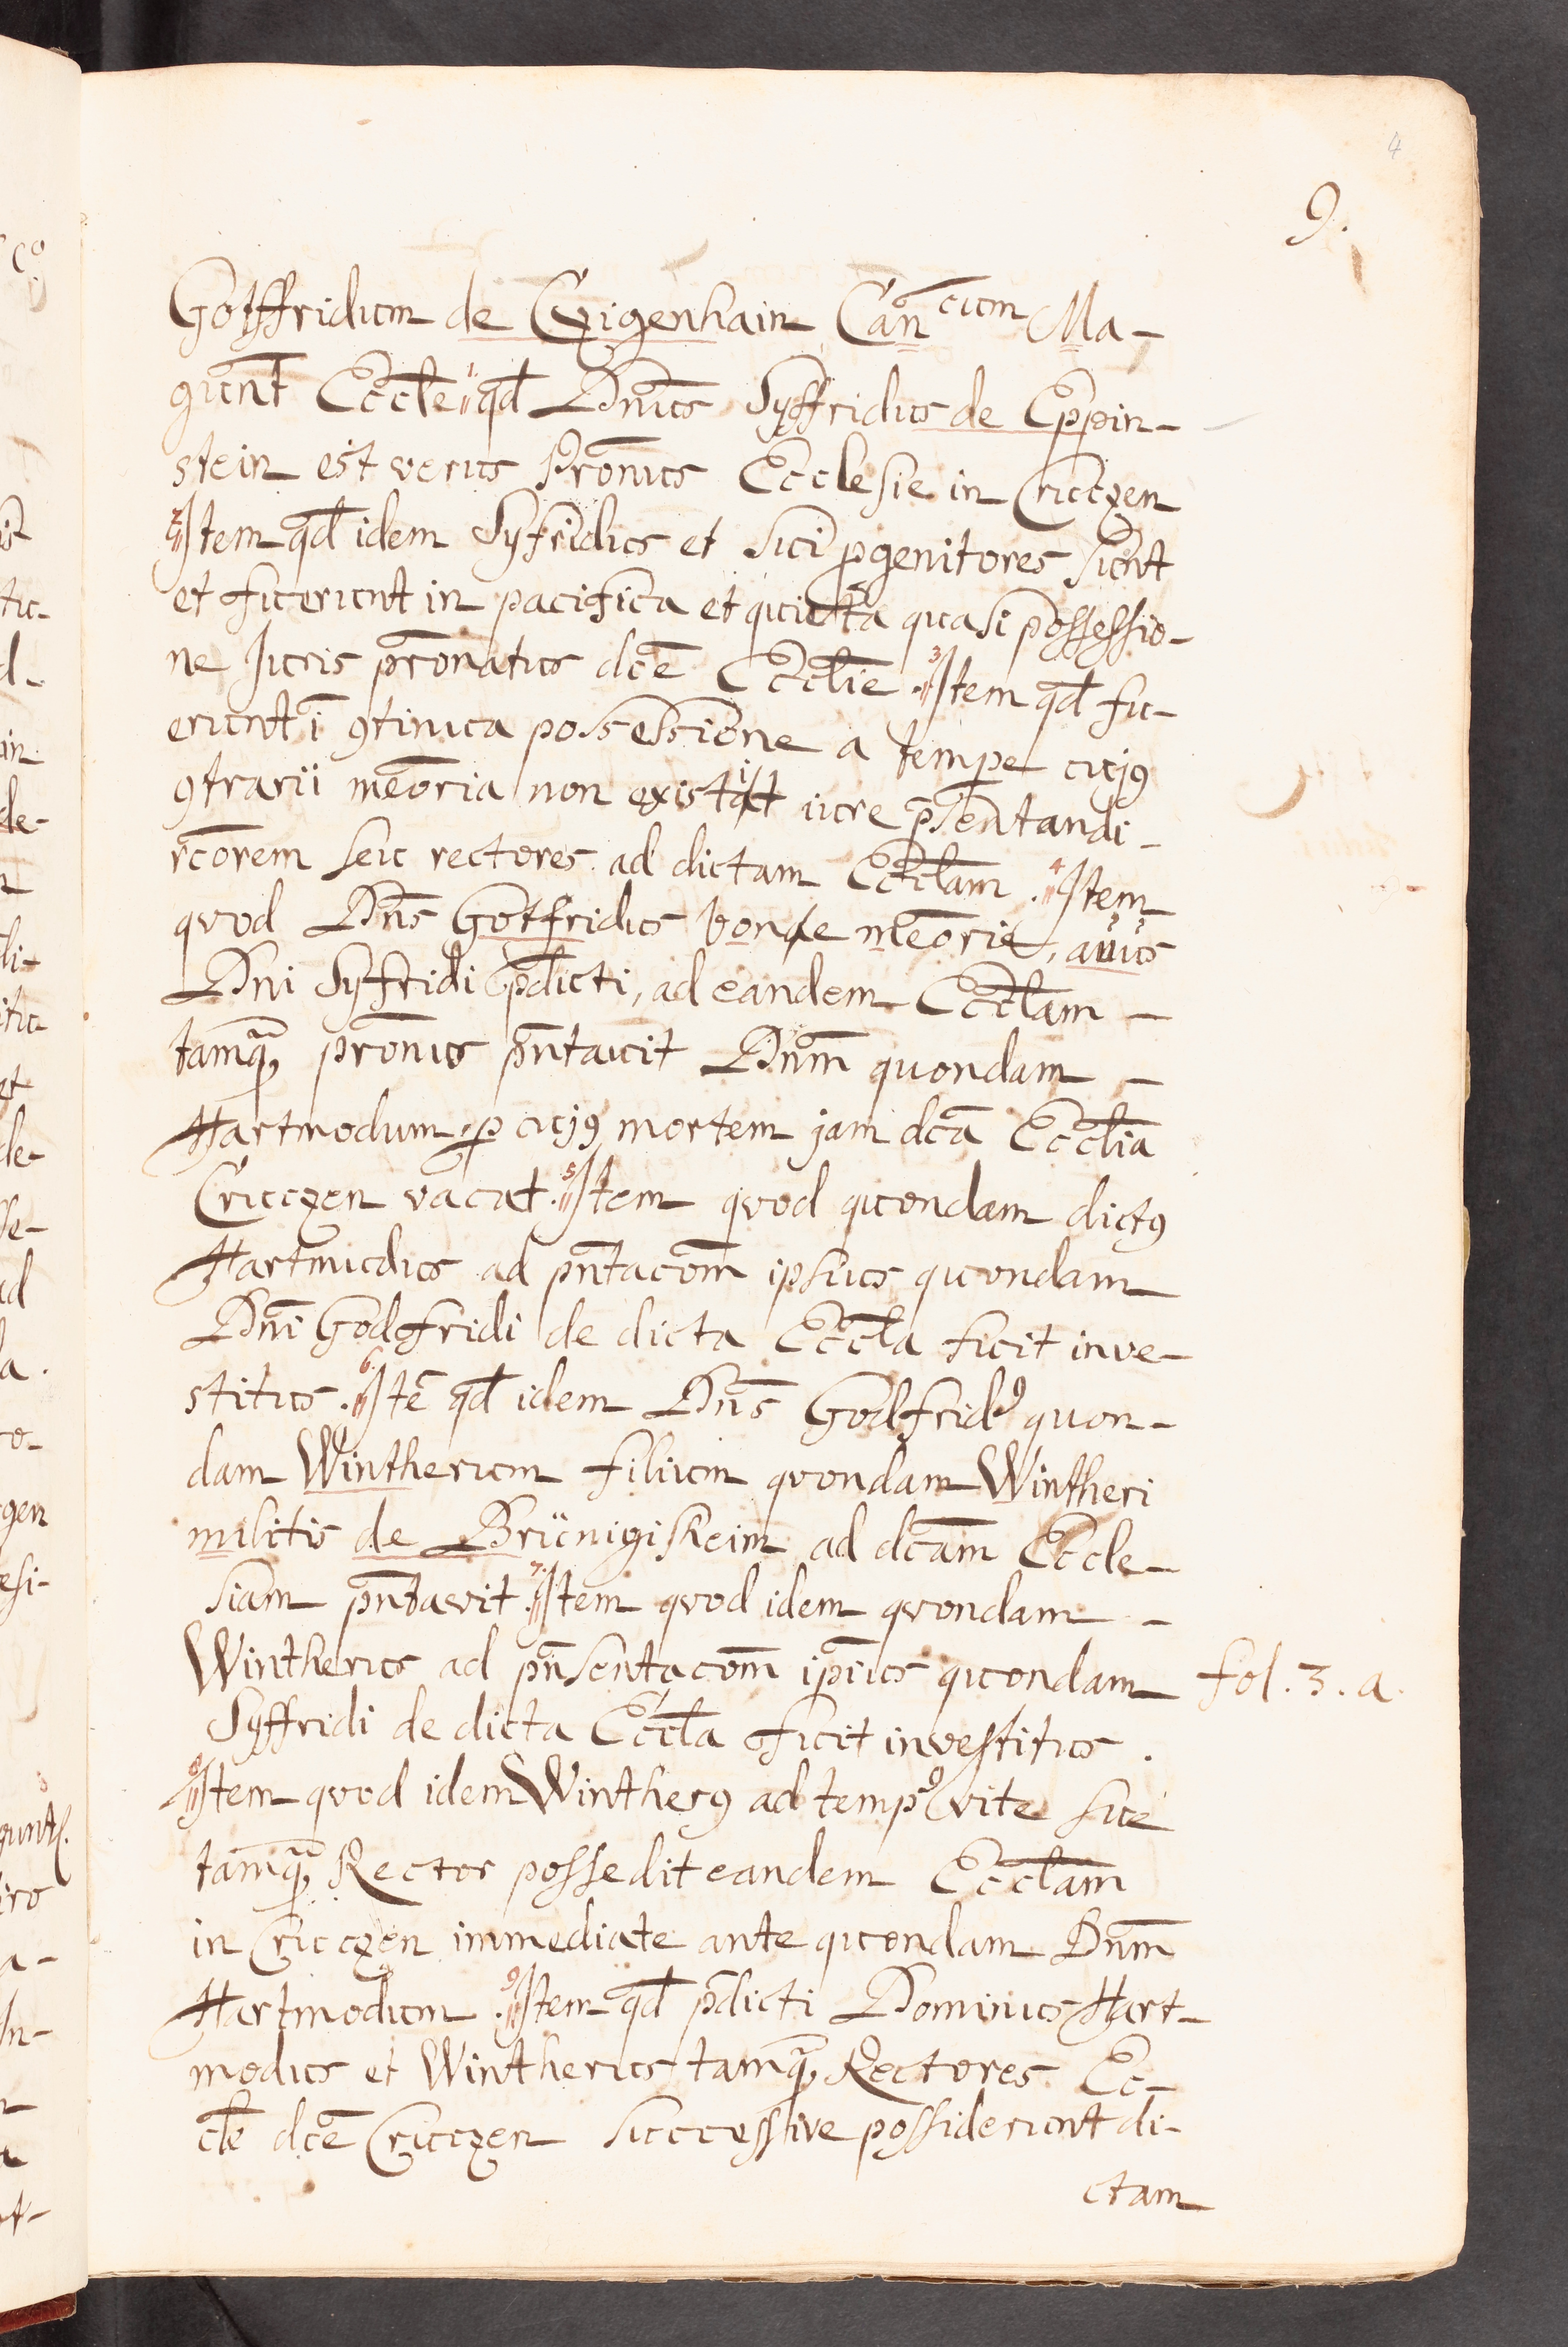 4
9.
Gotffridum de Czigenhain Can̄cum Ma-
gunt̄ Eccl̄e qd̄ Dn̄us Syffridus de Eppin-
stein est verus Pr̄onus Ecclesie in Cruczen
2 Item qd̄ idem Syfridus et sui p̱genitores sunt
et fuerunt in pacifica et quieta quasi possessio-
ne Juris pr̄onatus dc̄e Eccl̄ie . 3 Item qd̄ fu-
erunt ī ꝯtinua possessione a temp̱e cujꝰ
ꝯtrarii mēoria non existit iure p̄sentandi
rc̄orem seu rectores ad dictam Eccl̄am . 4 Item
quod Dn̄s Gotfridus bone mēorie, avus
Dni Syffridi p̄dicti, ad eandem Eccl̄am -
tamqꝫ pr̄onus pn̄tauit Dn̄m quondam -
Hartmodum, p̱ cujꝰ mortem jam dc̄a Eccl̄ia
Cruczen vacat . 5 Item quod quondam dictꝰ
Hartmudus ad pn̄tacōm ipsius quondam
Dn̄i Godfridi de dicta Eccl̄a fuit inve-
stitus . 6 Itē qd̄ idem Dn̄s Godfridꝰ quon-
dam Wintherum filium quondam Wintheri
militis de Brünigisheim ad dc̄am Eccle-
siam pn̄tavit . 7 Item quod idem quondam -
Wintherus ad pn̄sentacōm ip̄ius quondam
fol. 3. a.
Syffridi de dicta Eccl̄a fuit investitus .
8 Item quod idem Wintherꝰ ad tempꝰ vite sue
tamqꝫ Rector possedit eandem Eccl̄am
in Cruczen immediate ante quondam Dn̄m
Hartmodum . 9 Item qd̄ p̄dicti Dominus Hart-
modus et Wintherus tamqꝫ Rectores Ec-
cl̄e dc̄e Cruczen successive possiderunt di-
ctam